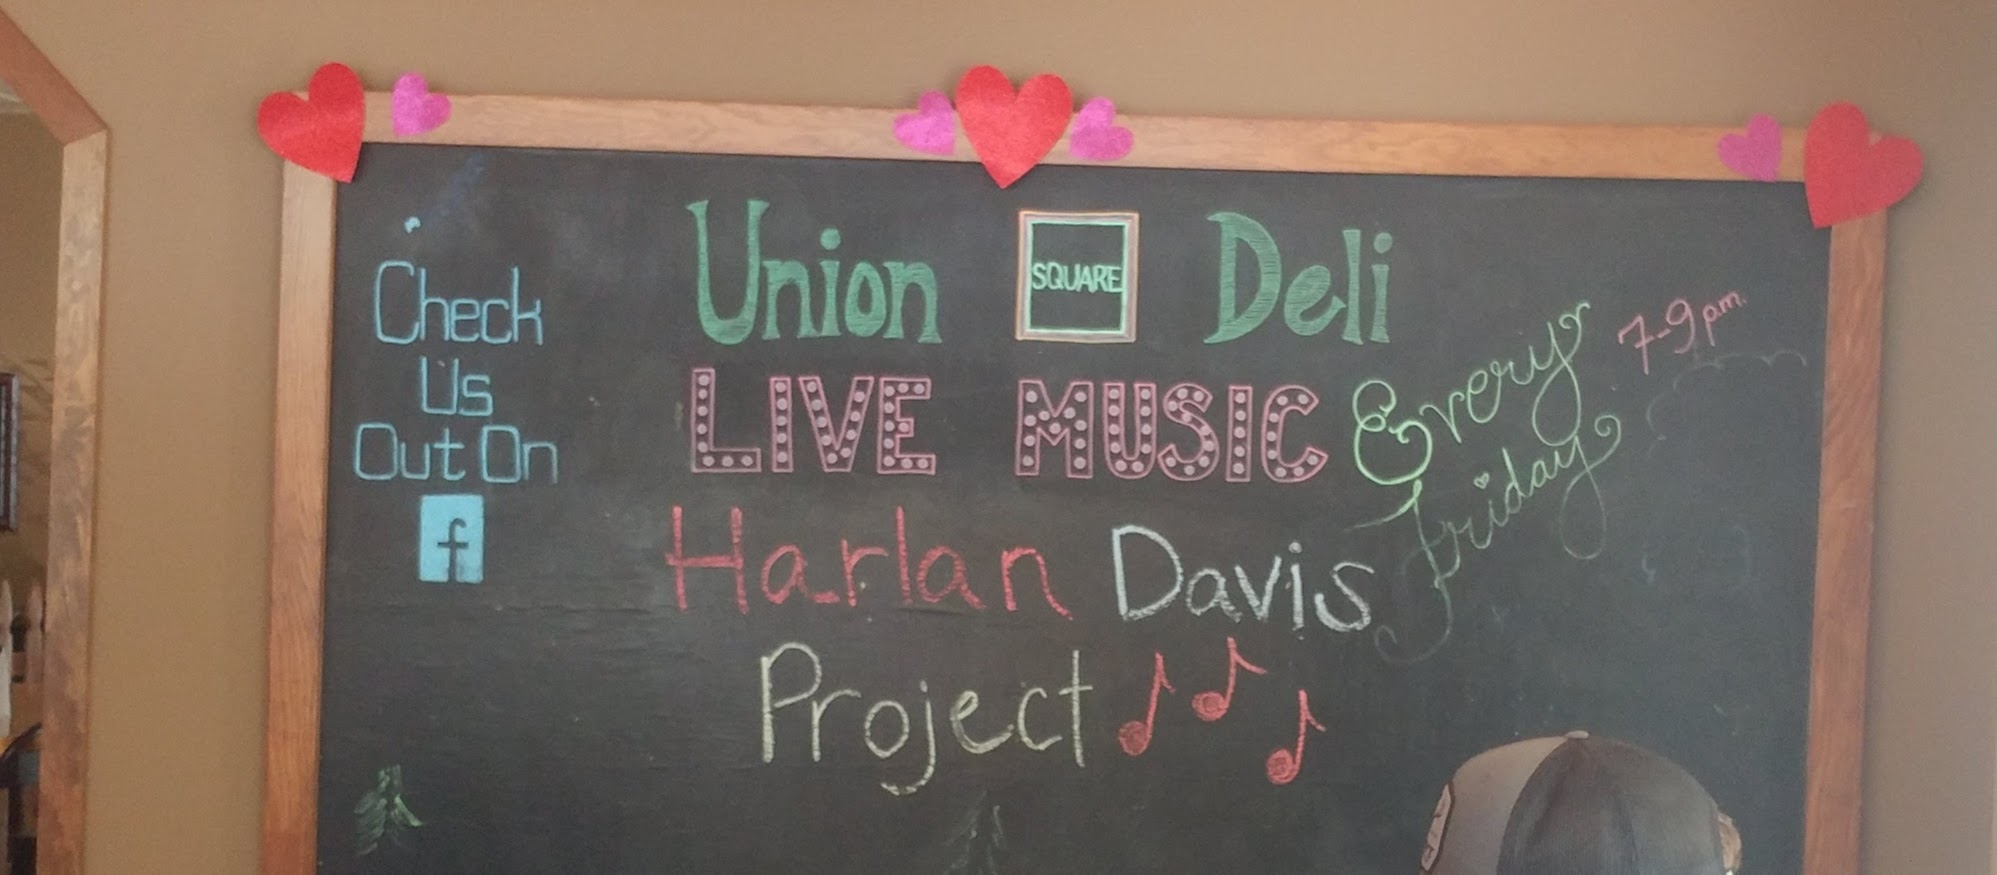 Union SQUARE Deli
LIVE MUSIC
Every
Friday
7-9 p.m.
Harlan Davis
Project
Check
Us
Out On
f